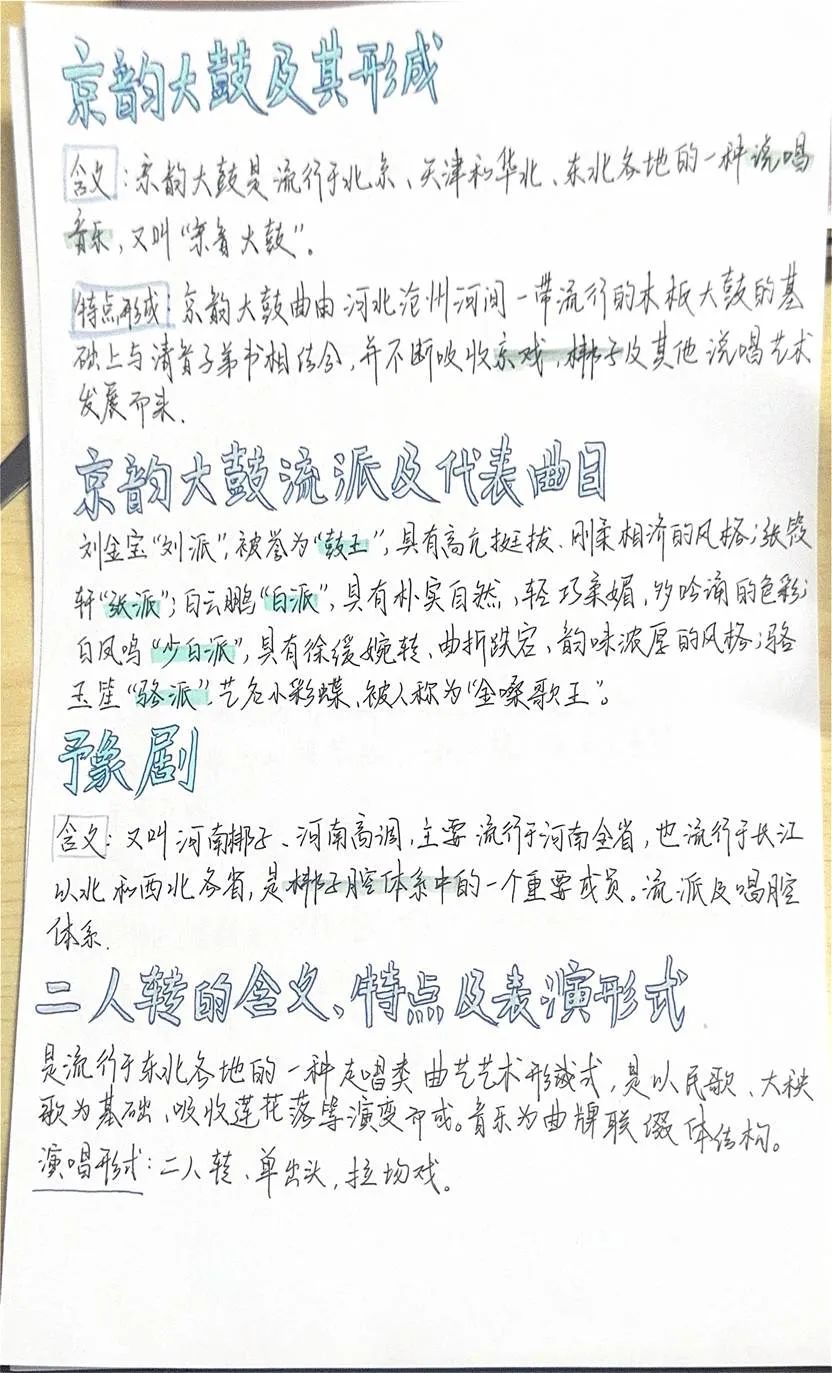 京韵大鼓及其形成
含义：京韵大鼓是流行于北京、天津和华北、东北各地的一种说唱
音乐，又叫“京音大鼓”。
特点形成：京韵大鼓曲由河北沧州河间一带流行的木板大鼓的基
础上与清音子弟书相结合，并不断吸收京戏，梆子及其他说唱艺术
发展而来.
京韵大鼓流派及代表曲目
刘金宝“刘派”，被誉为“鼓王”，具有高亢挺拔、刚柔相济的风格；张筱
轩“张派”；白云鹏“白派”，具有朴实自然，轻巧柔媚，多吟诵的色彩；
白凤鸣“少白派”，具有徐缓婉转、曲折跌宕、韵味浓厚的风格；骆
玉笙“骆派”艺名小彩蝶、被人称为“金嗓歌王”。
予象剧
含义：又叫河南梆子、河南高调，主要流行于河南全省，也流行于长江
以北和西北各省，是梆子腔体系中的一个重要成员。流派及唱腔
体系.
二人转的含义、特点及表演形式
是流行于东北各地的一种走唱类曲艺艺术形式，是以民歌、大秧
歌为基础、吸收莲花落等演变而成。音乐为曲牌联缀体结构。
演唱形式：二人转、单出头，拉场戏。